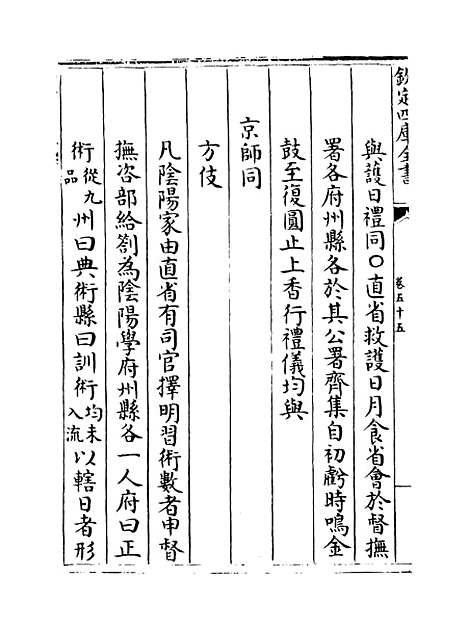 欽定四庫全書
卷五十五
與護日禮同〇直省救護日月食省會於督撫
署各府州縣各於其公署齊集自初虧時鳴金
鼓至復圓止上香行禮儀均與
京師同
方伎
凡陰陽家由直省有司官擇明習術數者申督
撫咨部給劄為陰陽學府州縣各一人府曰正
術從九品州曰典術縣曰訓術均未入流以轄日者形